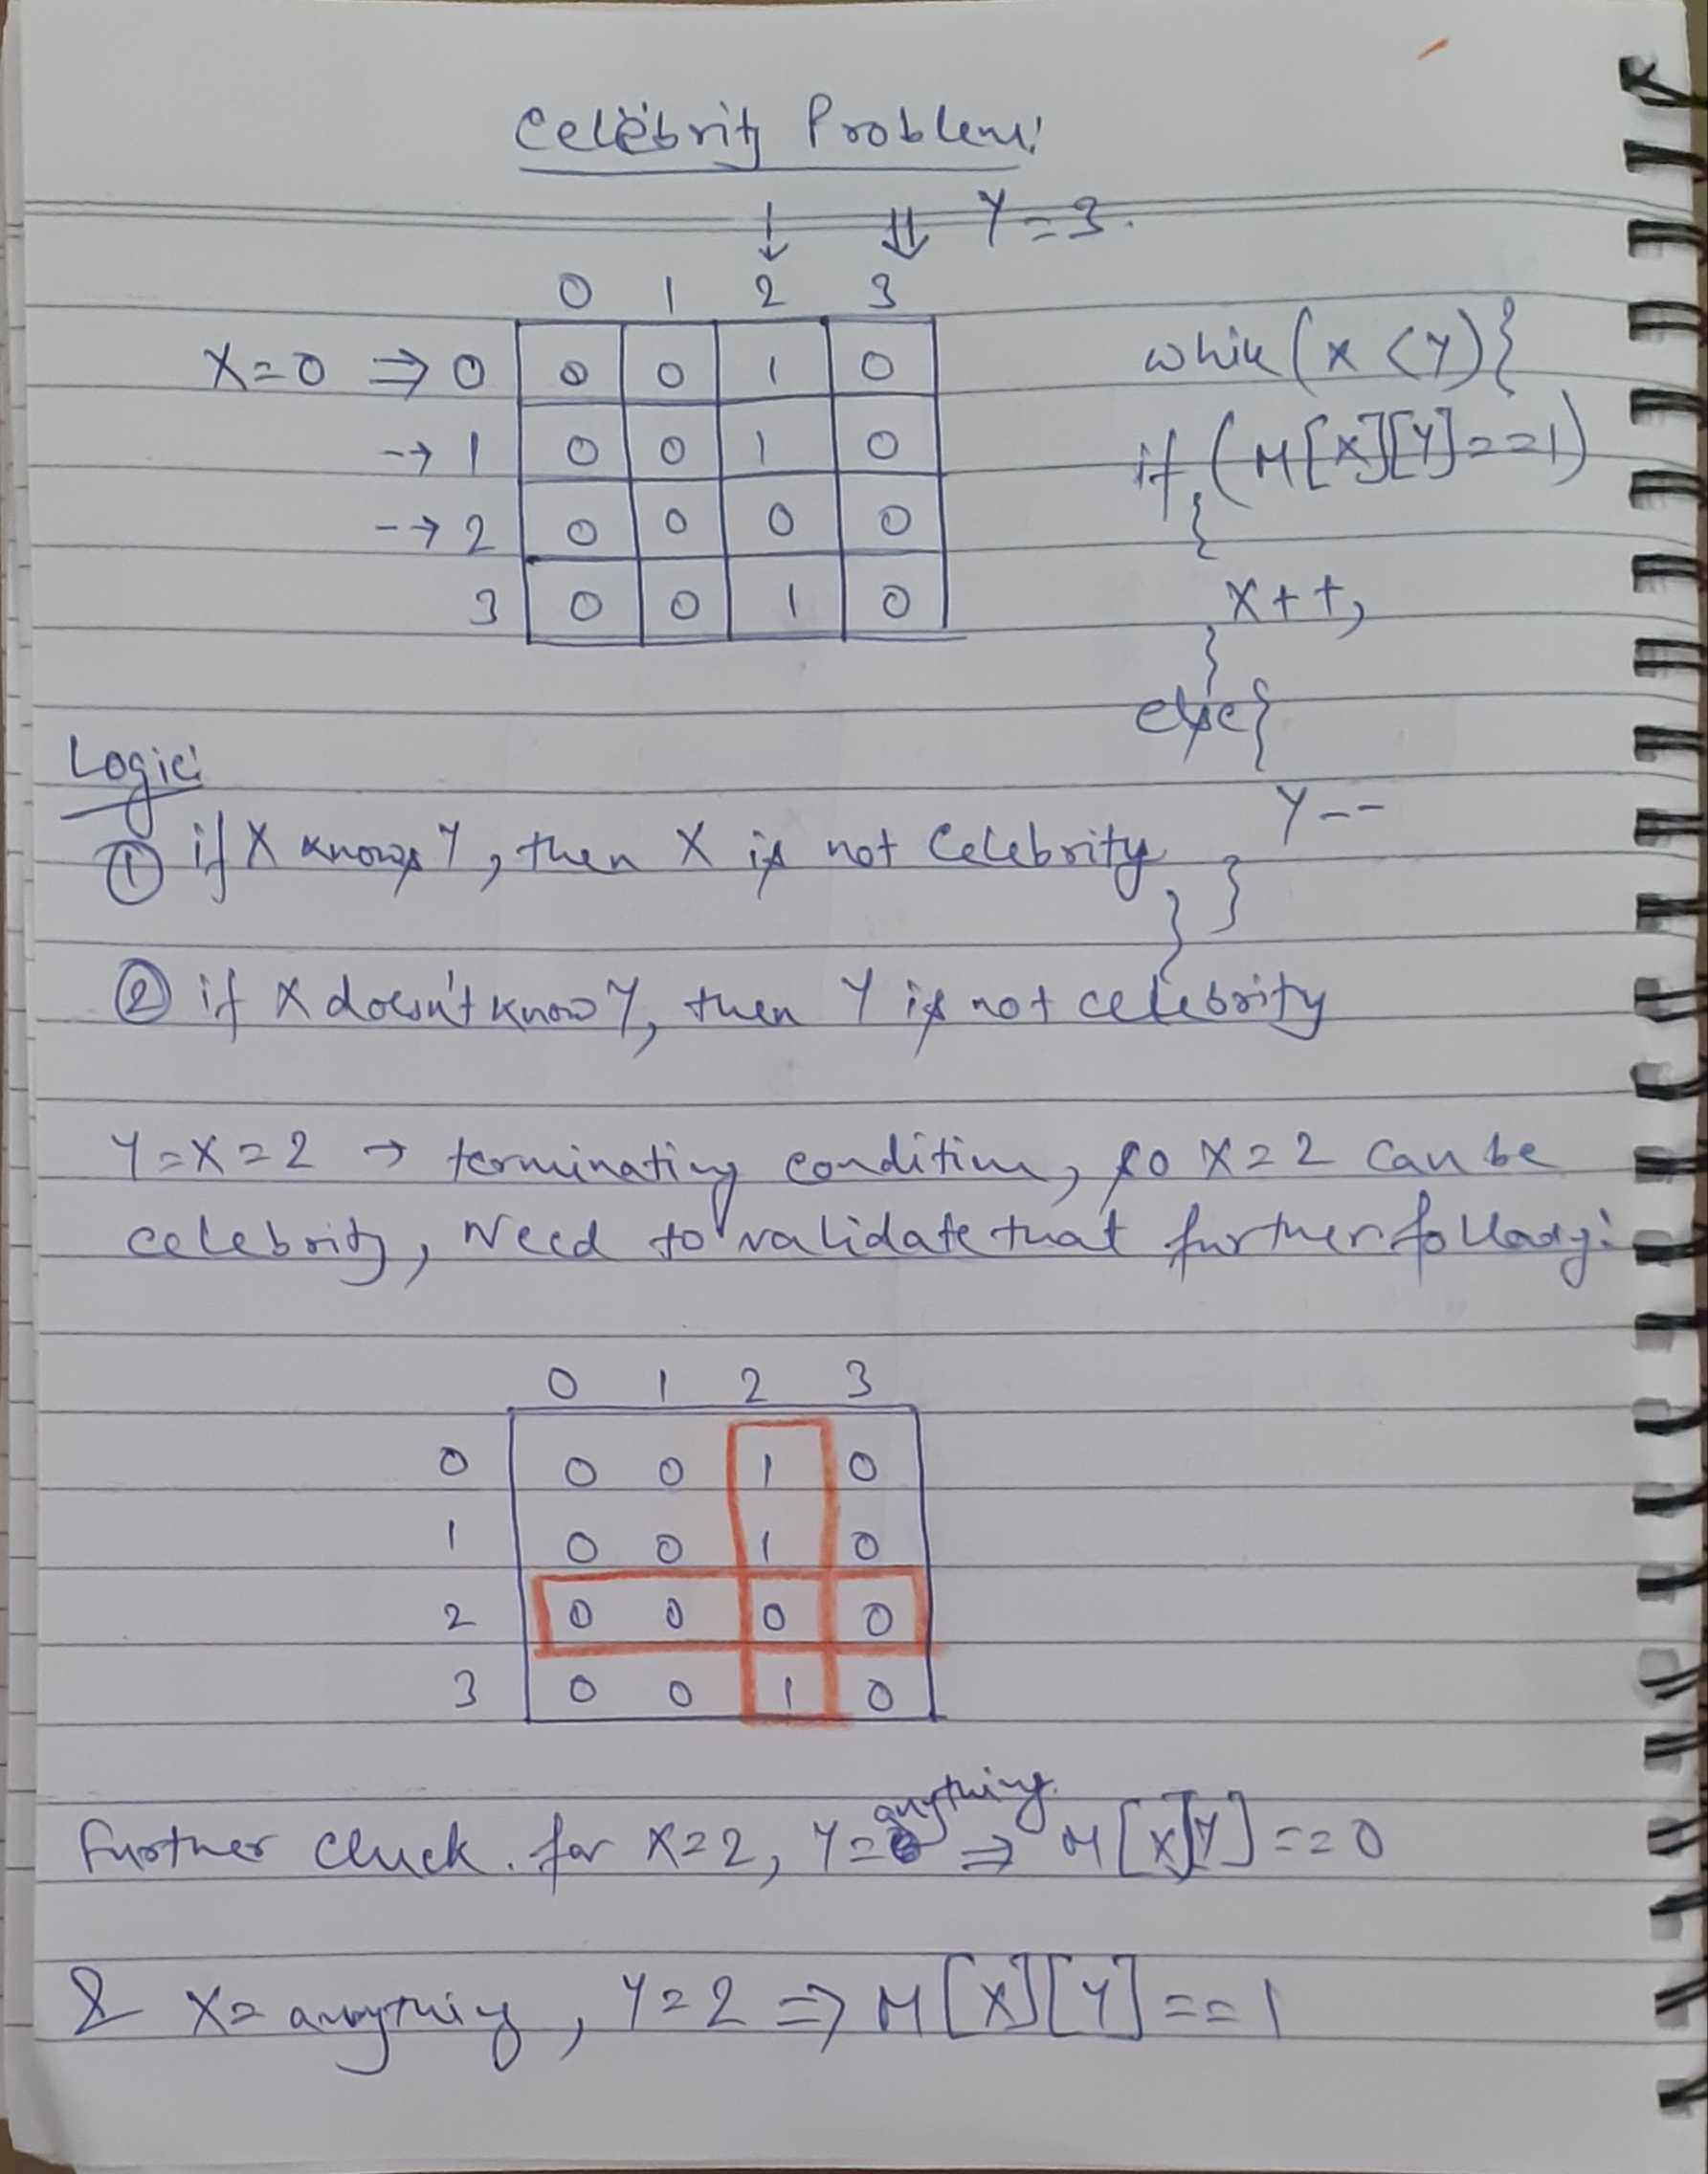 Celebrity Problem:
↓ ⇓ Y=3.
0 1 2 3
X=0 ⇒ 0 0 0 1 0
--→ 1 0 0 1 0
--→ 2 0 0 0 0
3 0 0 1 0
while (x < y) {
if (M[X][Y]==1)
{
X++,
}
else {
Y--
}
}
Logic:
① if X knows Y, then X is not Celebrity
② if X doesn't know Y, then Y is not celebrity
Y=X=2 → terminating condition, so X=2 can be
celebrity, Need to validate that further
0 1 2 3
0 0 0 1 0
1 0 0 1 0
2 0 0 0 0
3 0 0 1 0
Further check. for X=2, Y=anything. ⇒ M[X][Y]==0
& X=anything, Y=2 ⇒ M[X][Y]==1